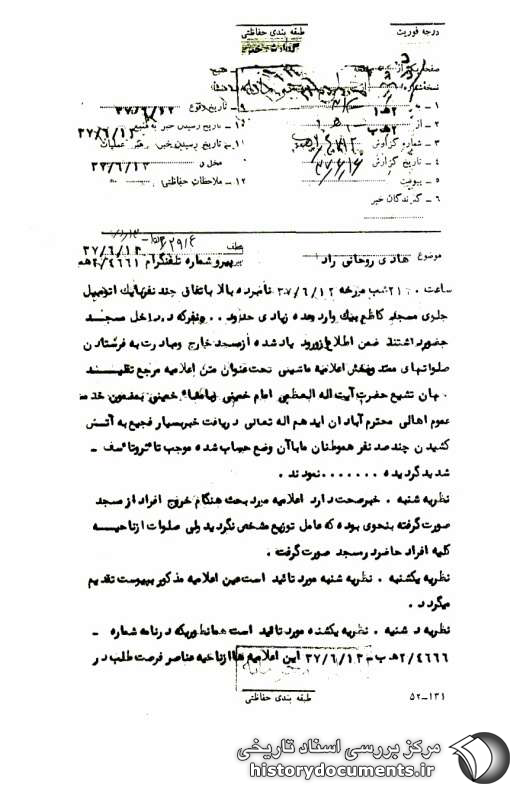 درجه فوریت
طبقه بندی حفاظتی
نسخه شماره
۱ - به ۲ ه ۱
۹ - تاریخ وقوع ۳۷/۶/۱۲
۲ - از ۲ ه ب
۱۰ - تاریخ رسیدن خبر به منبع
۳ - شماره گزارش
۱۱ - تاریخ رسیدن خبر به رهبر عملیات
۴ - تاریخ گزارش ۳۷/۶/۱۶
محل و ۳۷/۶/۱۳
۵ - پیوست
۱۲ - ملاحظات حفاظتی
۶ - گیرندگان خبر
عطف
۳۷/۶/۱۳
موضوع هادی روحانی راد
پیرو شماره تلفنگرام ۲/۴۶۶۱ ه
ساعت ۲۱۰۰ شب مورخه ۳۷/۶/۱۲ نامبرده بالا باتفاق چند نفر با یک اتومبیل
جلوی مسجد کاظم بیک وارد وعده زیادی حدود نفرکه در داخل مسجد
حضور داشتند ضمن اطلاع از ورود یاد شده از مسجد خارج ومبادرت به فرستادن
صلواتهای ممتد وپخش اعلامیه ماشینی تحت عنوان متن اعلامیه مرجع تقلید
جهان تشیع حضرت آیت اله العظمی امام خمینی بامضاء خمینی بمضمون خدمت
عموم اهالی محترم آبادان ایدهم اله تعالی دریافت خبر بسیار فجیع به آتش
کشیدن چند صد نفر هموطنان ما با آن وضع حساب شده موجب تاثر وتاسف -
شدید گردیده ....... نمودند .
نظریه شنبه . خبرصحت دارد اعلامیه مورد بحث هنگام خروج افراد از مسجد
صورت گرفته بنحوی بوده که عامل توزیع مشخص نگردید ولی صلوات از ناحیه
کلیه افراد حاضر در مسجد صورت گرفت .
نظریه یکشنبه . نظریه شنبه مورد تائید است عین اعلامیه مذکور بپیوست تقدیم
میگردد .
نظریه دوشنبه . نظریه یکشنبه مورد تائید است همانطوریکه در نامه شماره -
۲/۴۶۶۶ ه ب - ۳۷/۶/۱۳ این اعلامیه ها از ناحیه عناصر فرصت طلب در
طبقه بندی حفاظتی
۵۲-۱۳۱
مرکز بررسی اسناد تاریخی
historydocuments.ir